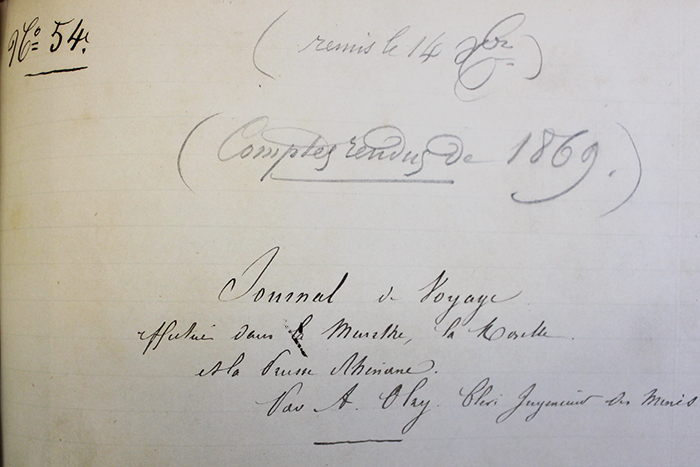 No 54.
(remis le 14 Xbr)
(Comptes rendus de 1869.)
Journal de Voyage
effectué dans la Meurthe, la Moselle
et la Prusse Rhénane.
Par A. Olry. Elève Ingénieur des Mines